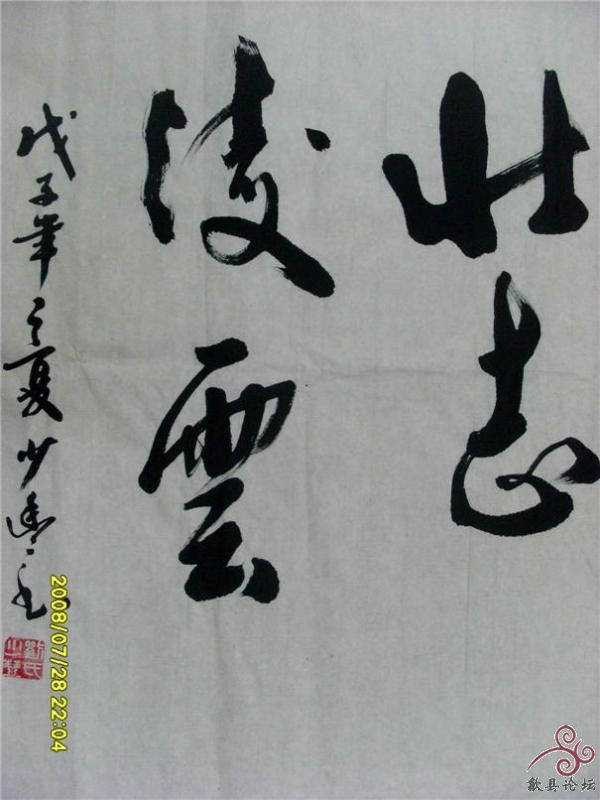 壮志
凌雲
戊子年之夏少
2008/07/28 22:04
歙县论坛